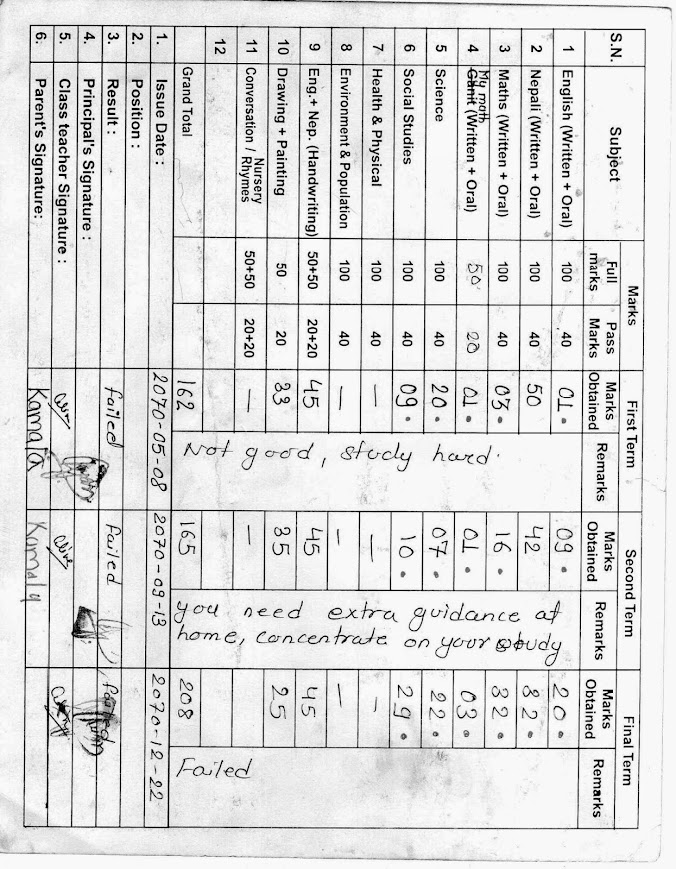 S.N. Subject Marks First Term Second Term Final Term
Full marks Pass Marks Marks Obtained Remarks Marks Obtained Remarks Marks Obtained Remarks
1 English (Written + Oral) 100 40 01. 09. 20.
2 Nepali (Written + Oral) 100 40 50 42 32.
3 Maths (Written + Oral) 100 40 03. 16. 32.
4 My math Ganit (Written + Oral) 50 20 01. 01. 03.
5 Science 100 40 20. 07. 22.
6 Social Studies 100 40 09. 10. 29.
7 Health & Physical 100 40 — — —
8 Environment & Population 100 40 — — —
9 Eng.+ Nep. (Handwriting) 50+50 20+20 45 45 45
10 Drawing + Painting 50 20 33 35 25
11 Conversation / Nursery Rhymes 50+50 20+20 — —
12
Grand Total 162 165 208
Not good, study hard.
you need extra guidance at
home, concentrate on your study
Failed
1. Issue Date : 2070-05-08 2070-09-13 2070-12-22
2. Position :
3. Result : failed Failed
4. Principal's Signature :
5. Class teacher Signature :
6. Parent's Signature: Kamala Kamala